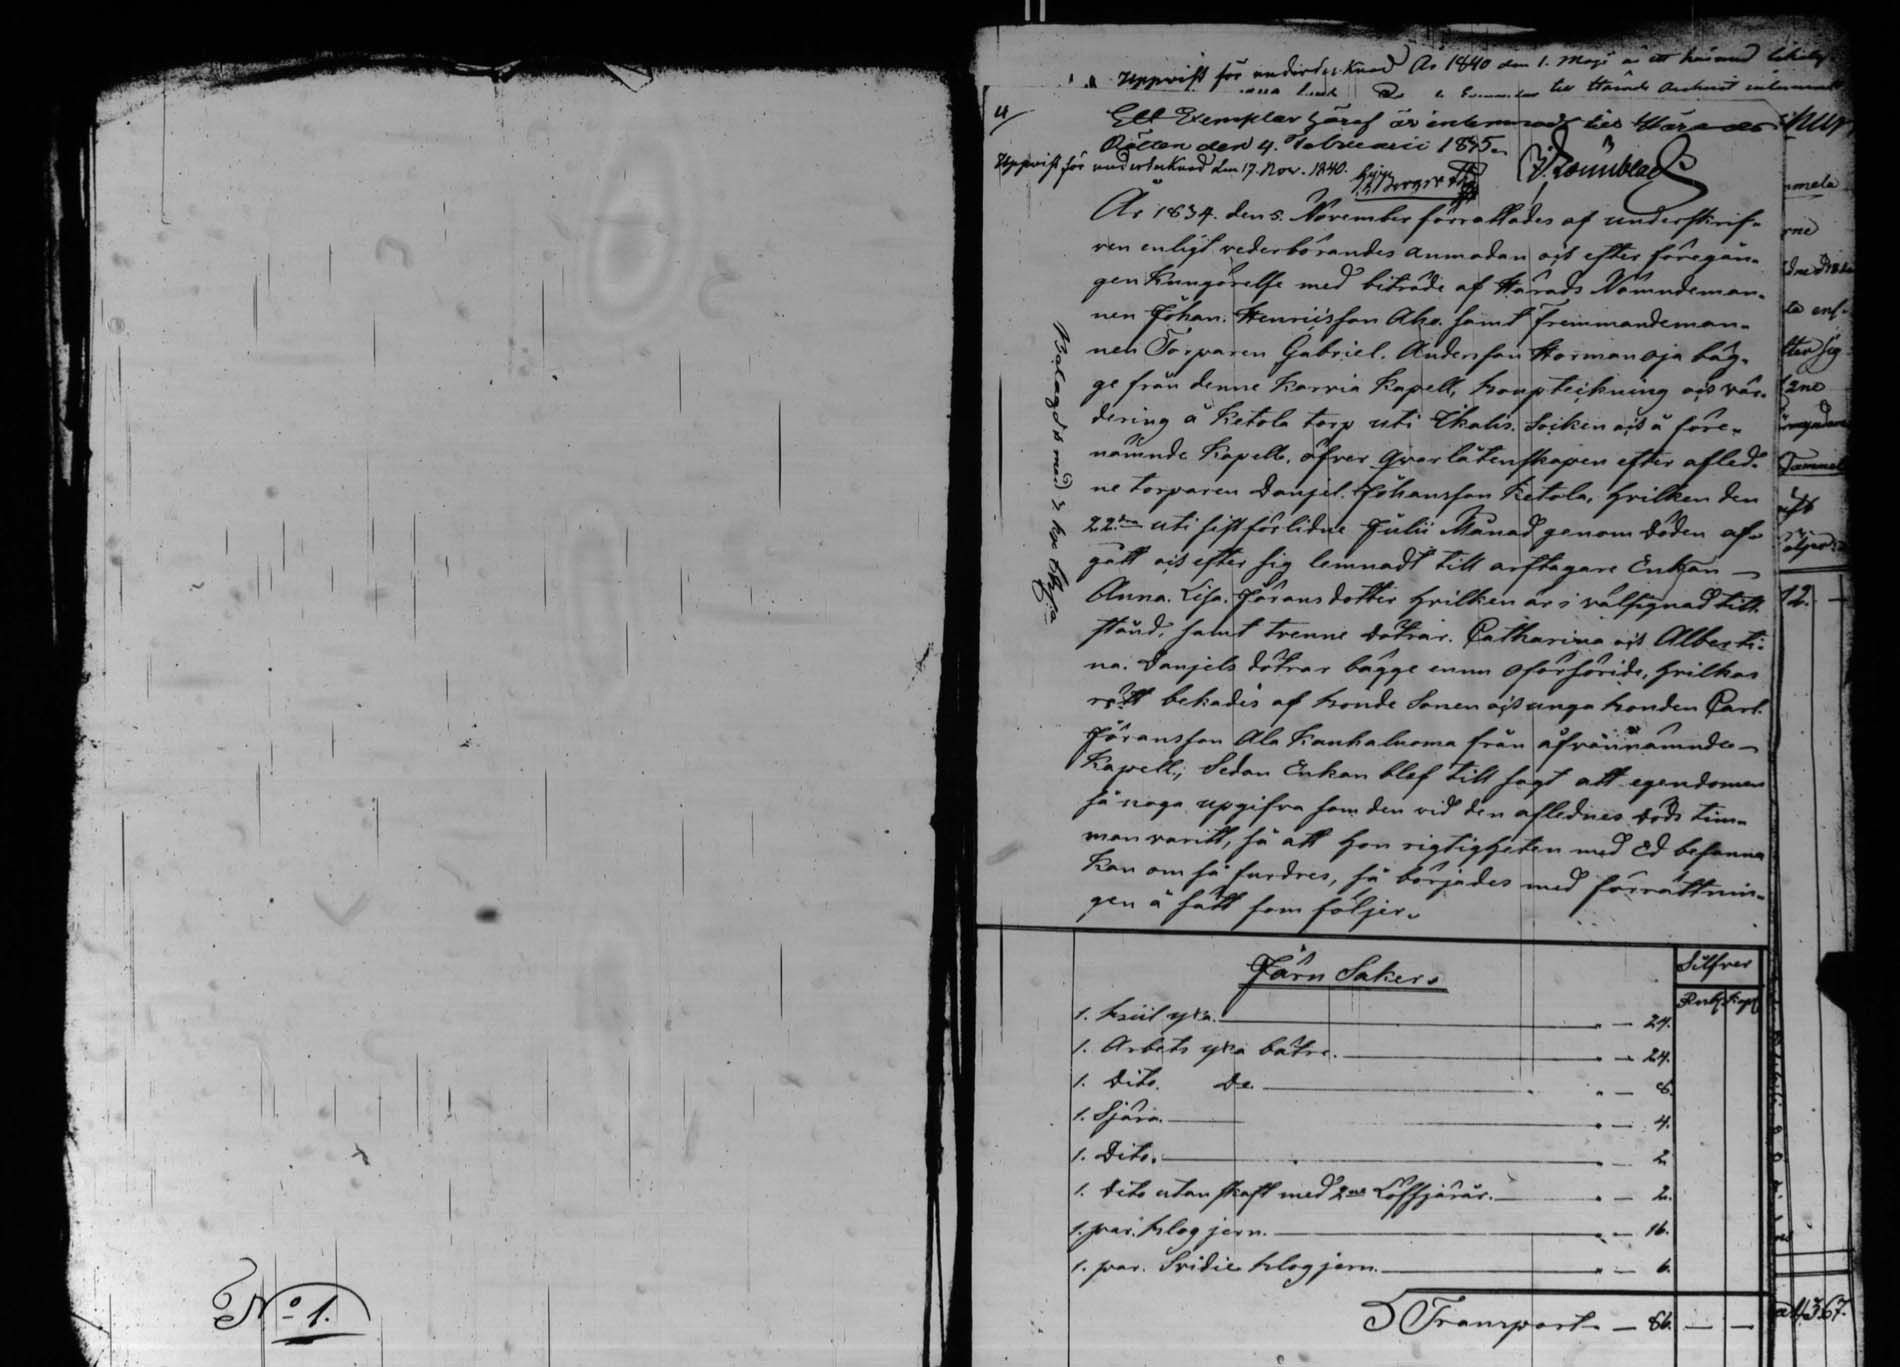 Uppvist för undertecknad År 1840 den 1. Maji
till Härads
4/
Ett Exemplar häraf är inlemnadt till Härads
Rätten den 4. Februarii 1835.
Uppvist för undertecknad den 17. Nov. 1840.
År 1834. den 5. November förrättades af underskrif-
ven enligt vederbörandes anmodan och efter föregån-
gen Kungörelse med biträde af Härads Nämndeman-
nen Johan. Henricsson Aho. samt fremmandeman-
nen Torparen Gabriel. Andersson Hormanoja båg-
ge från denne Karvia Kapell, Boupteckning och vär-
dering å Ketola torp uti Ikalis. Socken och å före-
nämnde Kapell, öfver Qvarlåtenskapen efter afled-
ne torparen Danjel. Johansson Ketola, hvilken den
22dra uti sistförlidne Julii Månad genom döden af-
gått och efter sig lemnadt till arftagare Enkan
Anna. Lisa. Jöransdotter hvilken är i välsignad till-
stånd, samt trenne dötrar. Catharina och Alberti-
na. Danjels dötrar bägge ennu oförsörjde, hvilkas
rätt bekades af Bonde Sonen och unga bonden Carl.
Jöransson Ala Kauhaluoma från åfvannämnde
Kapell; Sedan Enkan blef till sagt att egendomen
så noga upgifva som den vid den aflednes döds tim-
man varitt, så att hon rigtigheten med Ed besanna
kan om så fordres, så börjades med förrättnin-
gen å sätt som följer.
Järn Saker
Silfver
Rub. Kop.
1. Huil yxa. — 24.
1. Arbets yxa bätre. — 24.
1. Dito. Do. — 8.
1. Sjära. — 4.
1. Dito. — 2.
1. Dito utan skaft med 2ne Löfsjärar. — 2.
1. par. Klog jern. — 16.
1. par. Svidie klog jern. — 6.
Transport — 86. — —
No 1.
Tammel
12. —
367.